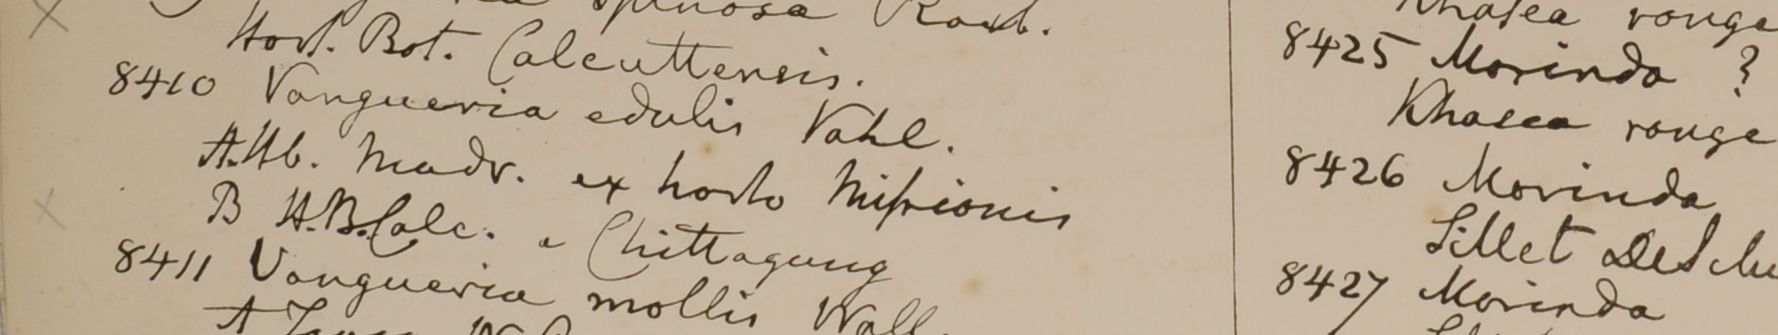 spinosa Roxb.
Hort. Bot. Calcuttensis.
8410 Vangueria edulis Vahl.
A. Hb. Madr. ex horto Missionis
B H.B. Calc. e Chittagung
8411 Vangueria mollis Wall
A
Khasea rouge
8425 Morinda ?
Khasea rouge
8426 Morinda
Sillet
8427 Morinda